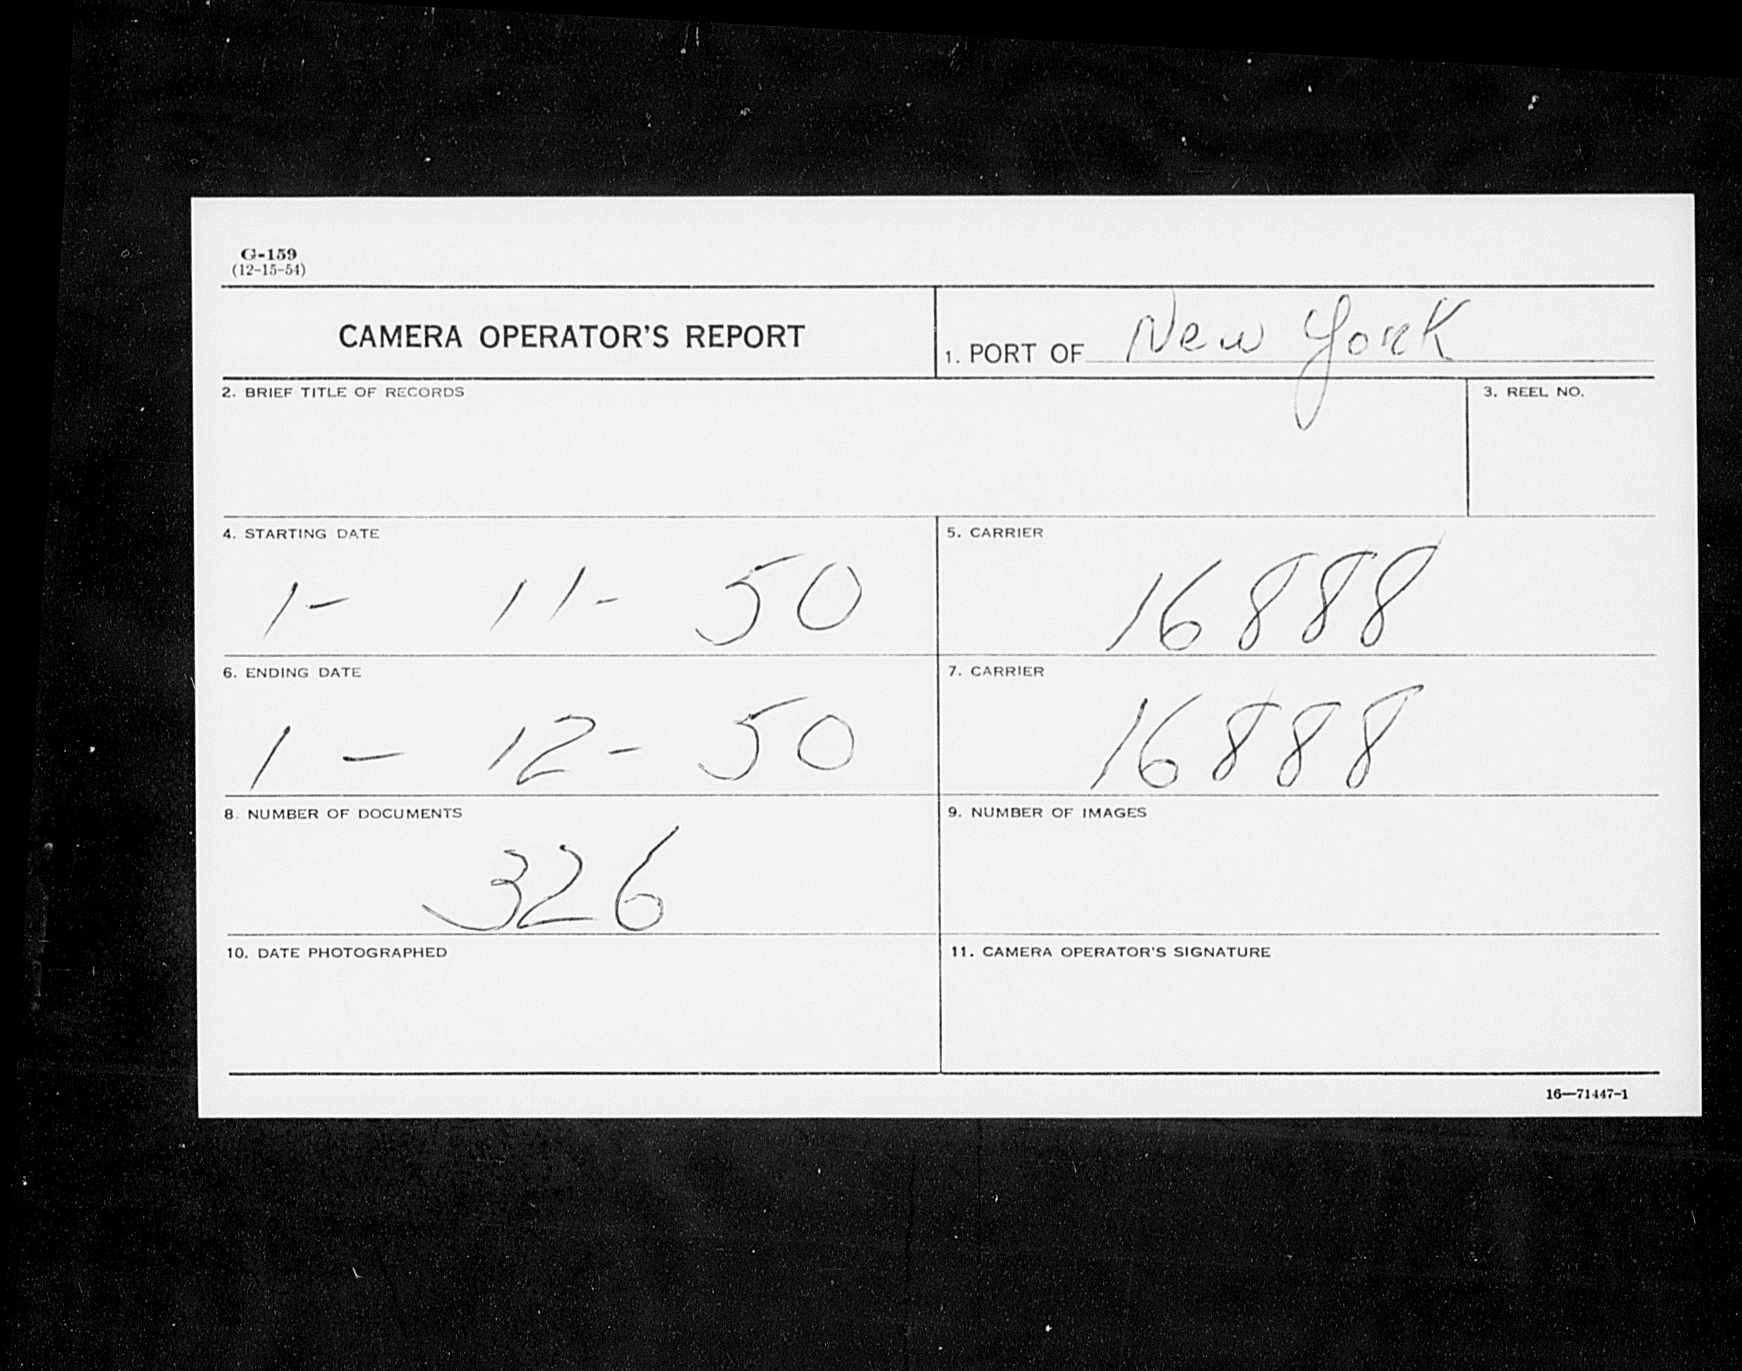 G-159
(12-15-54)
CAMERA OPERATOR'S REPORT
1. PORT OF New York
2. BRIEF TITLE OF RECORDS
3. REEL NO.
4. STARTING DATE
1- 11- 50
5. CARRIER
16888
6. ENDING DATE
1 - 12- 50
7. CARRIER
16888
8. NUMBER OF DOCUMENTS
326
9. NUMBER OF IMAGES
10. DATE PHOTOGRAPHED
11. CAMERA OPERATOR'S SIGNATURE
16—71447-1